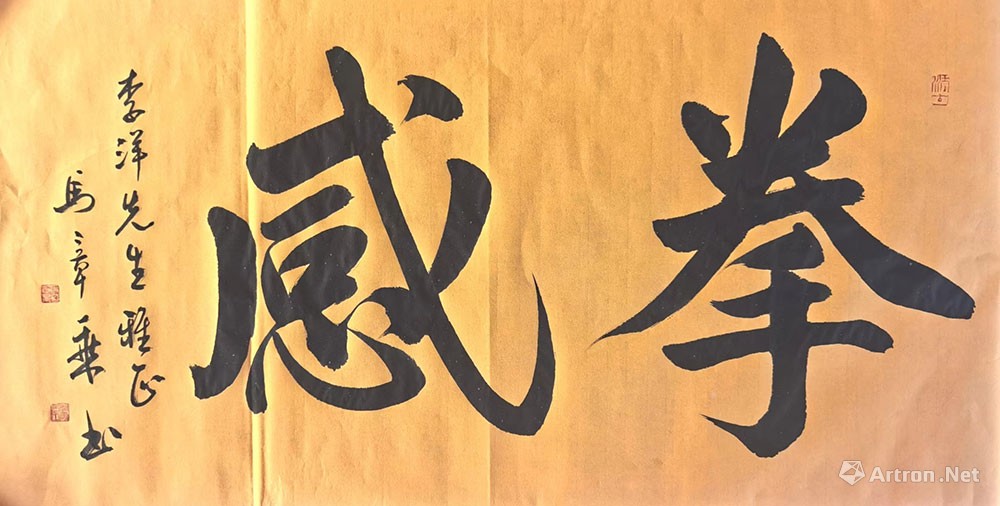 拳感
李洋先生雅正
馬章乘书
Artron.Net